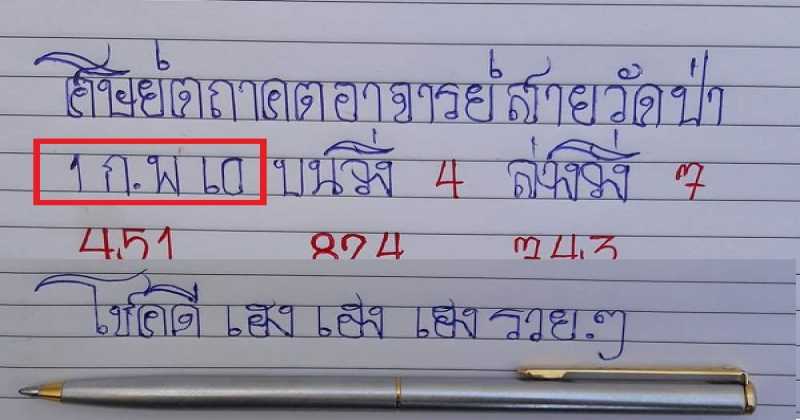 ศิษย์ตถาคตอาจารย์สายวัดป่า
1 ก.พ ๖๐ บนวิ่ง 4 ล่างวิ่ง 7
451 824 743
โชคดี เฮง เฮง เฮง รวย.ๆ